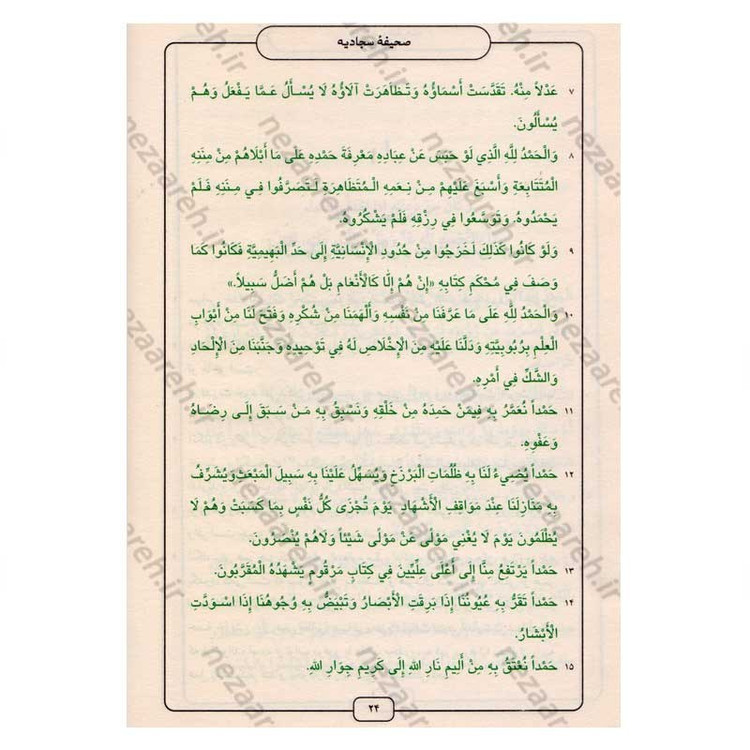 صحیفهٔ سجادیه
۷ عَدْلاً مِنْهُ. تَقَدَّسَتْ أَسْمَاؤُهُ وَتَظَاهَرَتْ آلَاؤُهُ لَا يُسْأَلُ عَمَّا يَفْعَلُ وَهُمْ
يُسْأَلُونَ.
۸ وَالْحَمْدُ لِلَّهِ الَّذِي لَوْ حَبَسَ عَنْ عِبَادِهِ مَعْرِفَةَ حَمْدِهِ عَلَى مَا أَبْلَاهُمْ مِنْ مِنَنِهِ
الْمُتَتَابِعَةِ وَأَسْبَغَ عَلَيْهِمْ مِنْ نِعَمِهِ الْمُتَظَاهِرَةِ لَتَصَرَّفُوا فِي مِنَنِهِ فَلَمْ
يَحْمَدُوهُ. وَتَوَسَّعُوا فِي رِزْقِهِ فَلَمْ يَشْكُرُوهُ.
۹ وَلَوْ كَانُوا كَذَلِكَ لَخَرَجُوا مِنْ حُدُودِ الْإِنْسَانِيَّةِ إِلَى حَدِّ الْبَهِيمِيَّةِ فَكَانُوا كَمَا
وَصَفَ فِي مُحْكَمِ كِتَابِهِ «إِنْ هُمْ إِلَّا كَالْأَنْعَامِ بَلْ هُمْ أَضَلُّ سَبِيلاً.»
۱۰ وَالْحَمْدُ لِلَّهِ عَلَى مَا عَرَّفَنَا مِنْ نَفْسِهِ وَأَلْهَمَنَا مِنْ شُكْرِهِ وَفَتَحَ لَنَا مِنْ أَبْوَابِ
الْعِلْمِ بِرُبُوبِيَّتِهِ وَدَلَّنَا عَلَيْهِ مِنَ الْإِخْلَاصِ لَهُ فِي تَوْحِيدِهِ وَجَنَّبَنَا مِنَ الْإِلْحَادِ
وَالشَّكِّ فِي أَمْرِهِ.
۱۱ حَمْداً نُعَمَّرُ بِهِ فِيمَنْ حَمِدَهُ مِنْ خَلْقِهِ وَنَسْبِقُ بِهِ مَنْ سَبَقَ إِلَى رِضَاهُ
وَعَفْوِهِ.
۱۲ حَمْداً يُضِيءُ لَنَا بِهِ ظُلُمَاتِ الْبَرْزَخِ وَيُسَهِّلُ عَلَيْنَا بِهِ سَبِيلَ الْمَبْعَثِ وَيُشَرِّفُ
بِهِ مَنَازِلَنَا عِنْدَ مَوَاقِفِ الْأَشْهَادِ يَوْمَ تُجْزَى كُلُّ نَفْسٍ بِمَا كَسَبَتْ وَهُمْ لَا
يُظْلَمُونَ يَوْمَ لَا يُغْنِي مَوْلًى عَنْ مَوْلًى شَيْئاً وَلَاهُمْ يُنْصَرُونَ.
۱۳ حَمْداً يَرْتَفِعُ مِنَّا إِلَى أَعْلَى عِلِّيِّينَ فِي كِتَابٍ مَرْقُومٍ يَشْهَدُهُ الْمُقَرَّبُونَ.
۱۴ حَمْداً تَقَرُّ بِهِ عُيُونُنَا إِذَا بَرِقَتِ الْأَبْصَارُ وَتَبْيَضُّ بِهِ وُجُوهُنَا إِذَا اسْوَدَّتِ
الْأَبْشَارُ.
۱۵ حَمْداً نُعْتَقُ بِهِ مِنْ أَلِيمِ نَارِ اللهِ إِلَى كَرِيمِ جِوَارِ اللهِ.
۲۴
nezaareh.ir